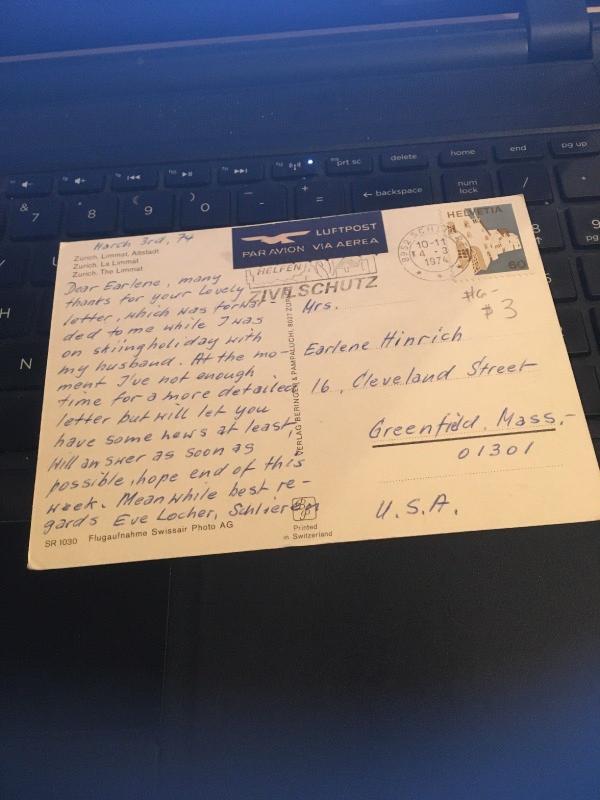 March 3rd, 74
Zurich, Limmat, Altstadt
Zurich, La Limmat
Zurich, The Limmat
Dear Earlene, many
thanks for your lovely
letter, which was forwar-
ded to me while I was
on skiingholiday with
my husband. At the mo-
ment I've not enough
time for a more detailed
letter but will let you
have some news at least,
Will answer as soon as
possible, hope end of this
week. Meanwhile best re-
gards Eve Locher, Schlieren
SR 1030 Flugaufnahme Swissair Photo AG
VERLAG BERINGER & PAMPALUCHI, 8027 ZÜR
Printed
in Switzerland
LUFTPOST
PAR AVION VIA AEREA
HELFEN
ZIVILSCHUTZ
8952
10-11
4.-3
1974
HELVETIA
60
$6-
$3
Mrs.
Earlene Hinrich
16, Cleveland Street
Greenfield, Mass.-
01301
U.S.A.
prt sc
delete
home
end
pg up
&
7
*
8
(
9
)
0
-
+
=
← backspace
num
lock
/
N